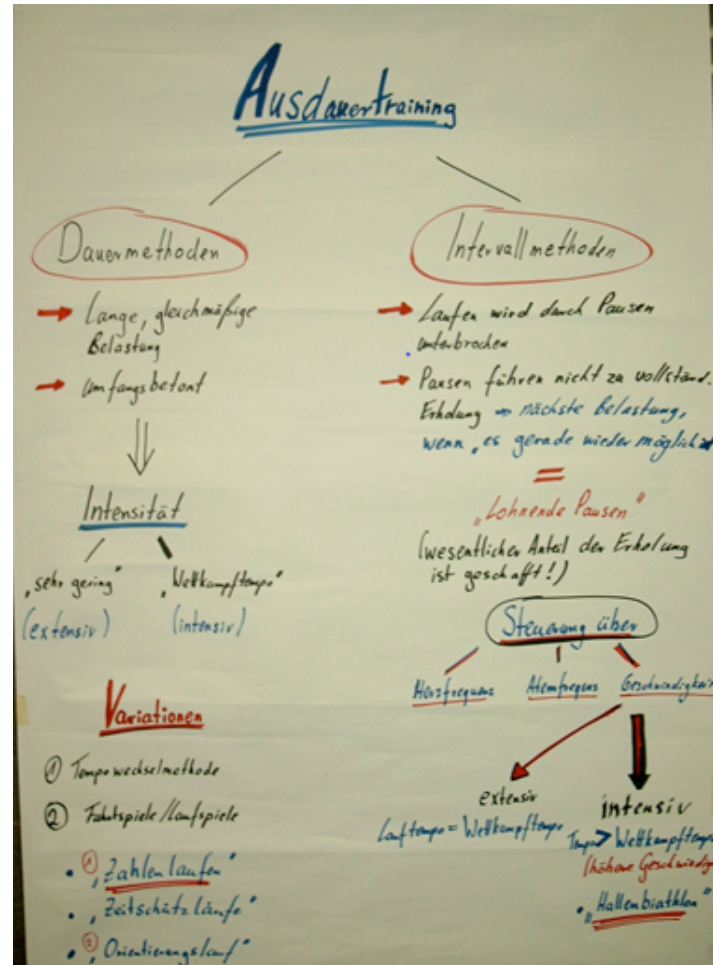 Ausdauertraining
Dauermethoden
→ Lange, gleichmäßige
Belastung
→ umfangsbetont
Intensität
"sehr gering" "Wettkampftempo"
(extensiv) (intensiv)
Variationen
① Tempowechselmethode
② Fahrtspiele/Laufspiele
• ① "Zahlenlaufen"
• "Zeitschätzläufe"
• ② "Orientierungslauf"
Intervallmethoden
→ Laufen wird durch Pausen
unterbrochen
→ Pausen führen nicht zu vollständ.
Erholung ⇒ nächste Belastung,
wenn "es gerade wieder möglich"
=
"Lohnende Pausen"
(wesentlicher Anteil der Erholung
ist geschafft!)
Steuerung über
Herzfrequenz Atemfrequenz Geschwindigkeit
extensiv
Lauftempo = Wettkampftempo
intensiv
Tempo > Wettkampftempo
(höhere
• "Hallenbiathlon"